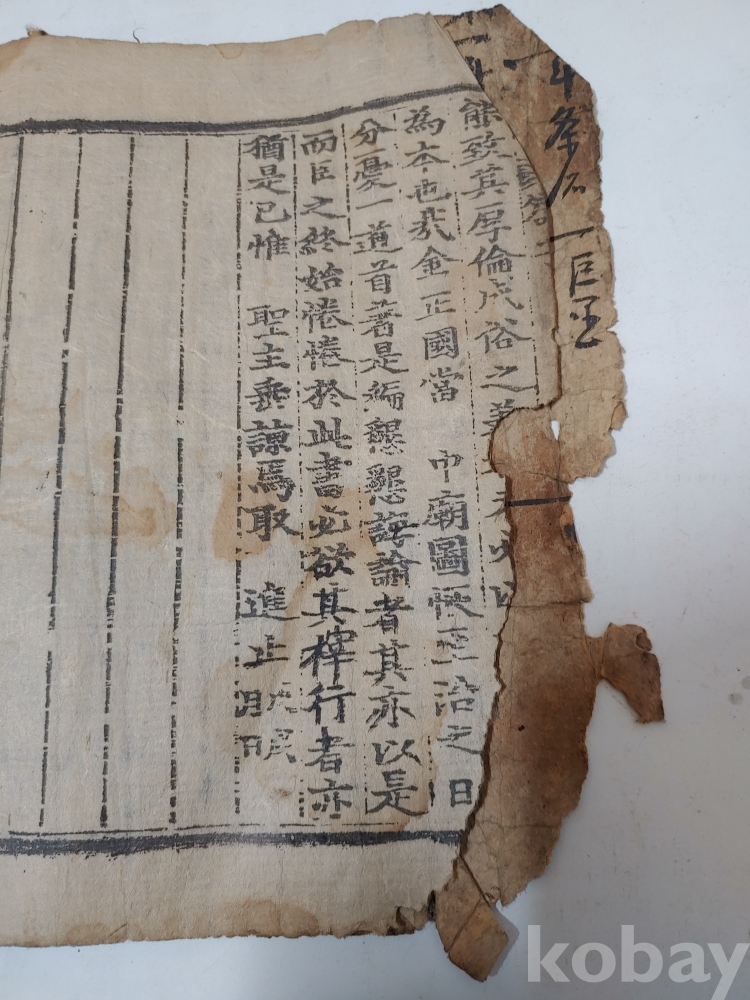 能致其厚倫成俗之美
為本也哉金正國當 中廟圖恢至治之日
分憂一道首著是編懇懇誨諭者其亦以是
而臣之終始惓惓於此書必欲其梓行者亦
猶是已惟 聖主垂諒焉取 進止
kobay